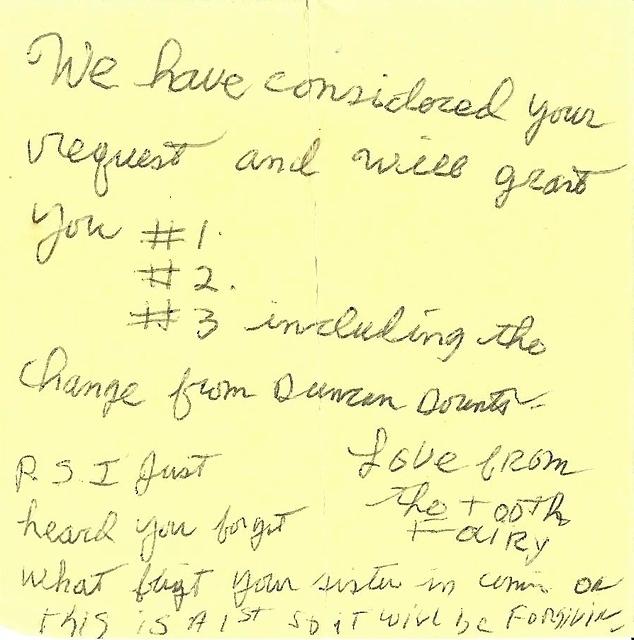 We have considored your
request and will grant
you #1.
#2.
#3 including the
Change from Duncan Donuts.
Love from
the Tooth
Fairy
P.S. I Just
heard you forgot
what fligt your sister in comin on
this is A 1st so it will be Forgivin.